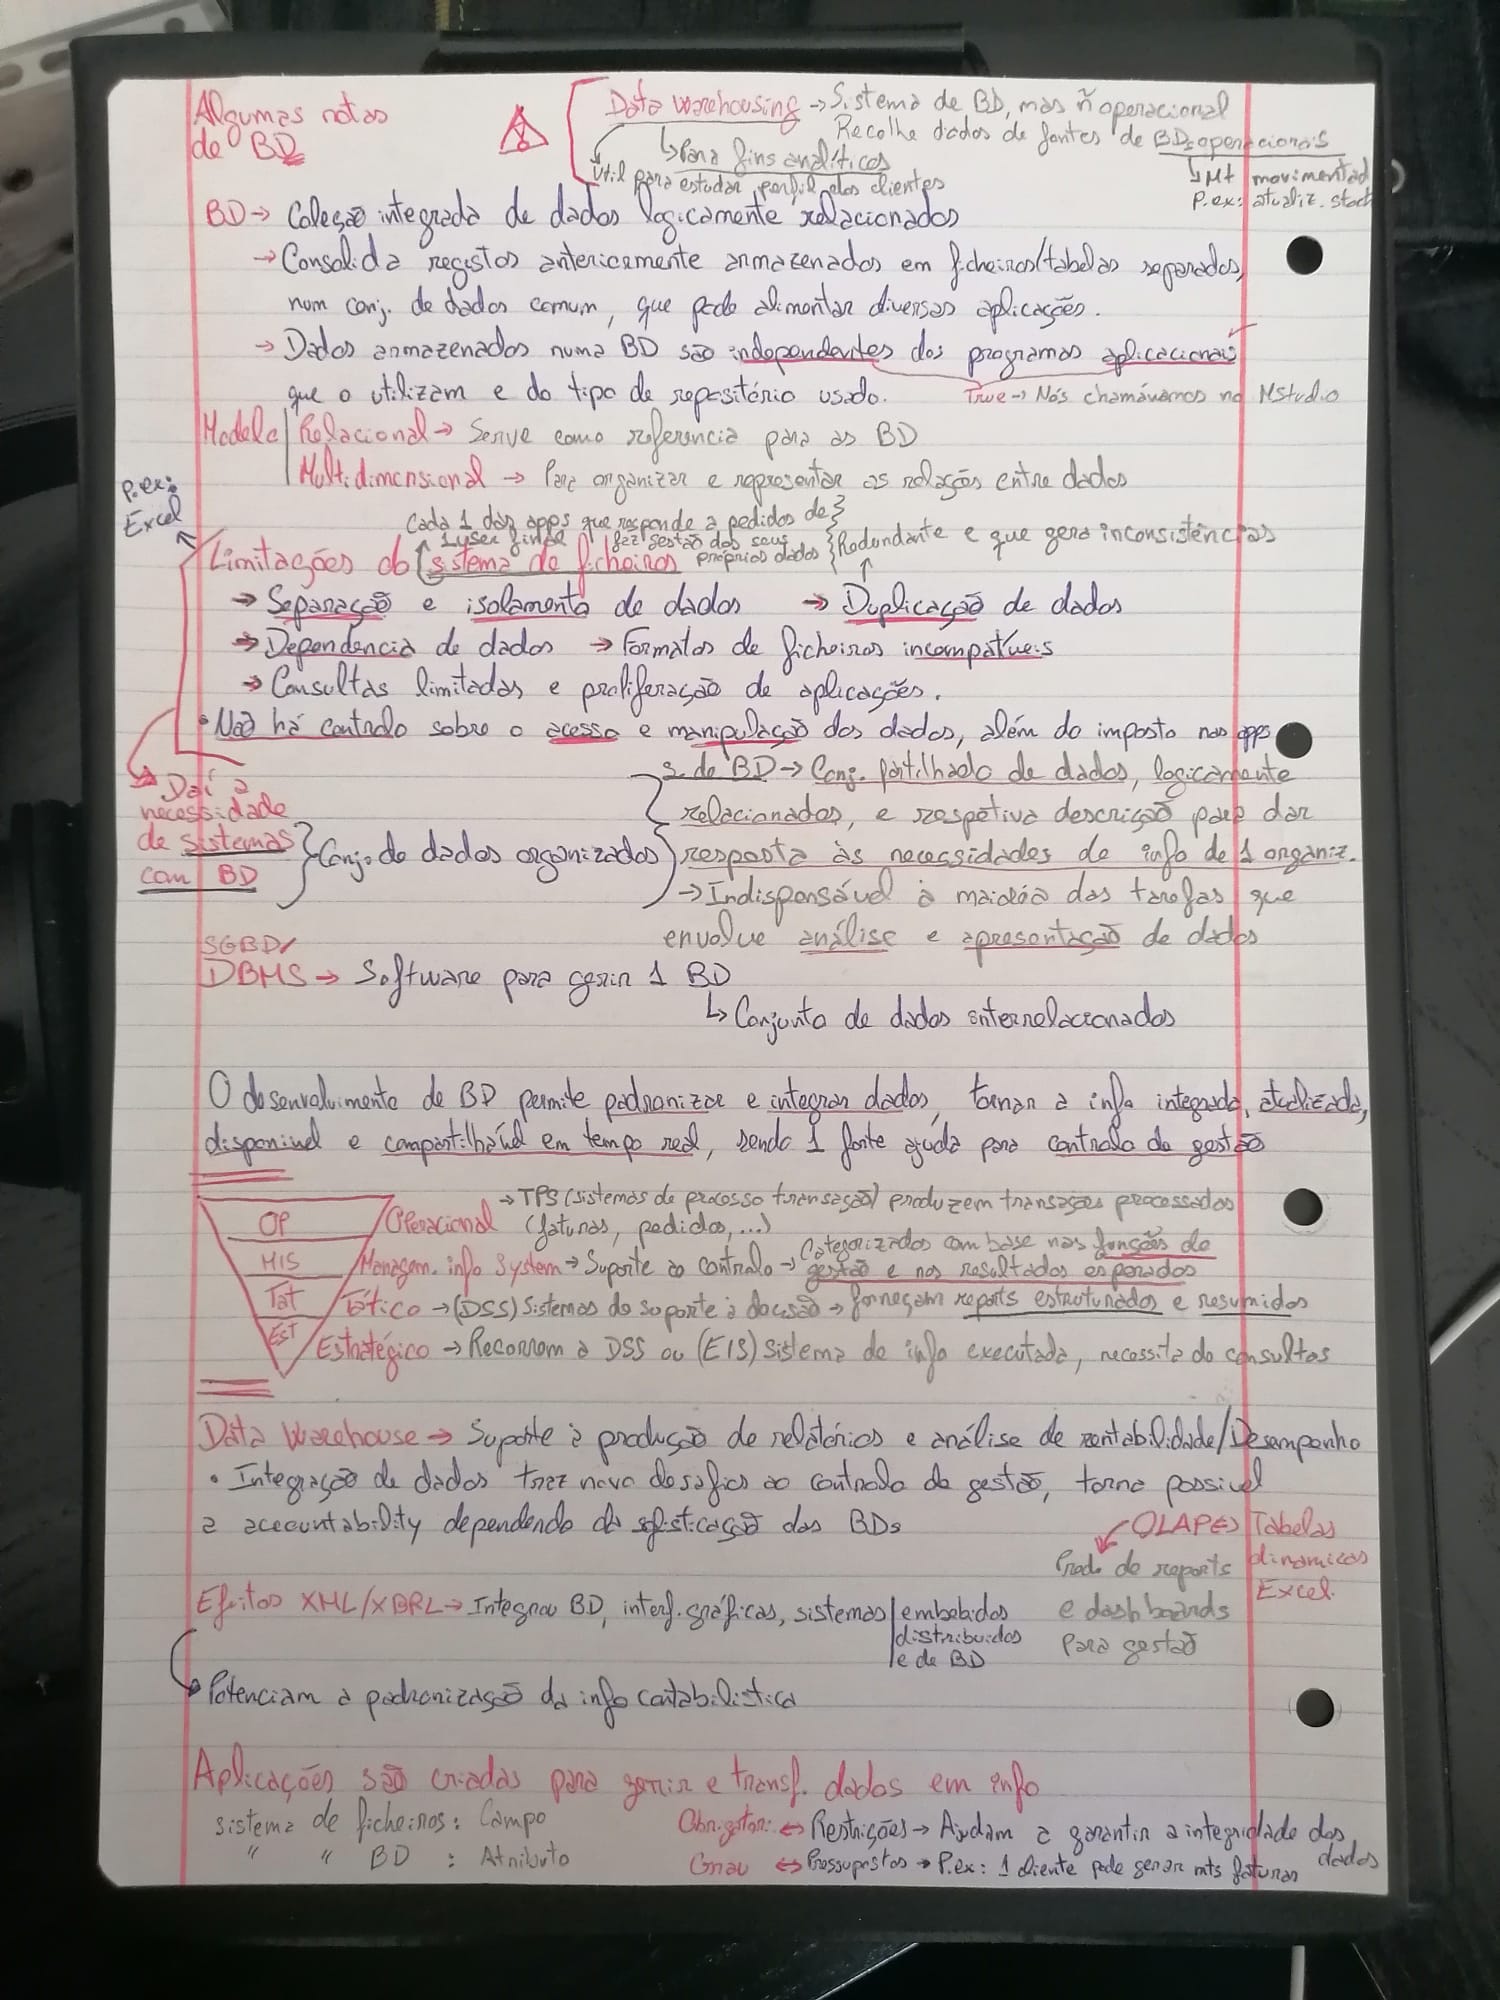 Algumas notas
de BD
Data Warehousing → Sistema de BD, mas ñ operacional
Recolhe dados de fontes de BDs operacionais
↳ Para fins analíticos
Útil para estudar perfil dos clientes
↳ Mt movimentad
P.ex: atualiz. stock
BD → Coleção integrada de dados logicamente relacionados
→ Consolida registos anteriormente armazenados em ficheiros/tabelas separados,
num conj. de dados comum, que pode alimentar diversas aplicações.
→ Dados armazenados numa BD são independentes dos programas aplicacionais
que o utilizam e do tipo de repositório usado.
True → Nós chamávamos no MStudio
Modelo | Relacional → Serve como referencia para as BD
Multidimensional → Para organizar e representar as relações entre dados
P.ex:
Excel
Cada 1 das apps que responde a pedidos de
1 user final faz gestão dos seus
próprios dados
Redundante e que gera inconsistências
Limitações do sistema de ficheiros
→ Separação e isolamento de dados → Duplicação de dados
→ Dependencia de dados → Formatos de ficheiros incompatíveis
→ Consultas limitadas e proliferação de aplicações.
• Não há controlo sobre o acesso e manipulação dos dados, além do imposto nas apps
→ Daí a
necessidade
de sistemas
com BD
} Conj. de dados organizados
S. de BD → Conj. partilhado de dados, logicamente
relacionados, e respetiva descrição para dar
resposta às necessidades de info de 1 organiz.
→ Indispensável à maioria das tarefas que
envolve análise e apresentação de dados
SGBD/
DBMS → Software para gerir 1 BD
↳ Conjunto de dados interrelacionados
O desenvolvimento de BD permite padronizar e integrar dados, tornar a info integrada, atualizada,
disponivel e compartilhável em tempo real, sendo 1 forte ajuda para controlo de gestão
OP
MIS
Tat
EST
Operacional → TPS (sistemas de processo transação) produzem transações processadas
(faturas, pedidos, ...)
Managem. info System → Suporte ao controlo → Categorizados com base nas funções de
gestão e nos resultados esperados
Tático → (DSS) Sistemas de suporte à decisão → forneçam reports estruturados e resumidos
Estratégico → Recorrem a DSS ou (EIS) Sistema de info executada, necessita de consultas
Data Warehouse → Suporte à produção de relatórios e análise de rentabilidade/Desempenho
• Integração de dados traz novo desafios ao controlo de gestão, torna possivel
a accountability dependendo da sofisticação das BDs
OLAP(⇒) Tabelas
dinamicas
Excel.
Prod. de reports
e dashboards
para gestão
Efeitos XML/XBRL → Integrou BD, interf. gráficas, sistemas | embebidos
distribuidos
e de BD
→ Potenciam a padronização da info contabilistica
Aplicações são criadas para gerir e transf. dados em info
Sistema de ficheiros: Campo
" " BD : Atributo
Obrigator: ↔ Restrições → Ajudam a garantir a integridade dos
dados
Grau ↔ Pressupostos → P.ex: 1 cliente pode gerar mts faturas